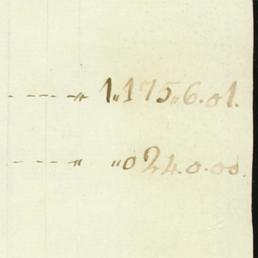 ---- „ 1„175„6.01.
---- „ „024.0.00.